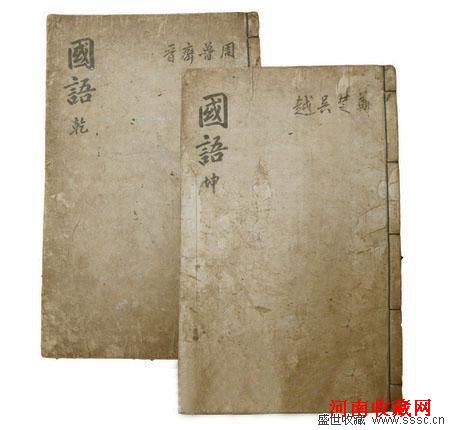 國語
乾
周魯齊晉
國語
坤
鄭楚吳越
河南收藏网
盛世收藏 www.sssc.cn